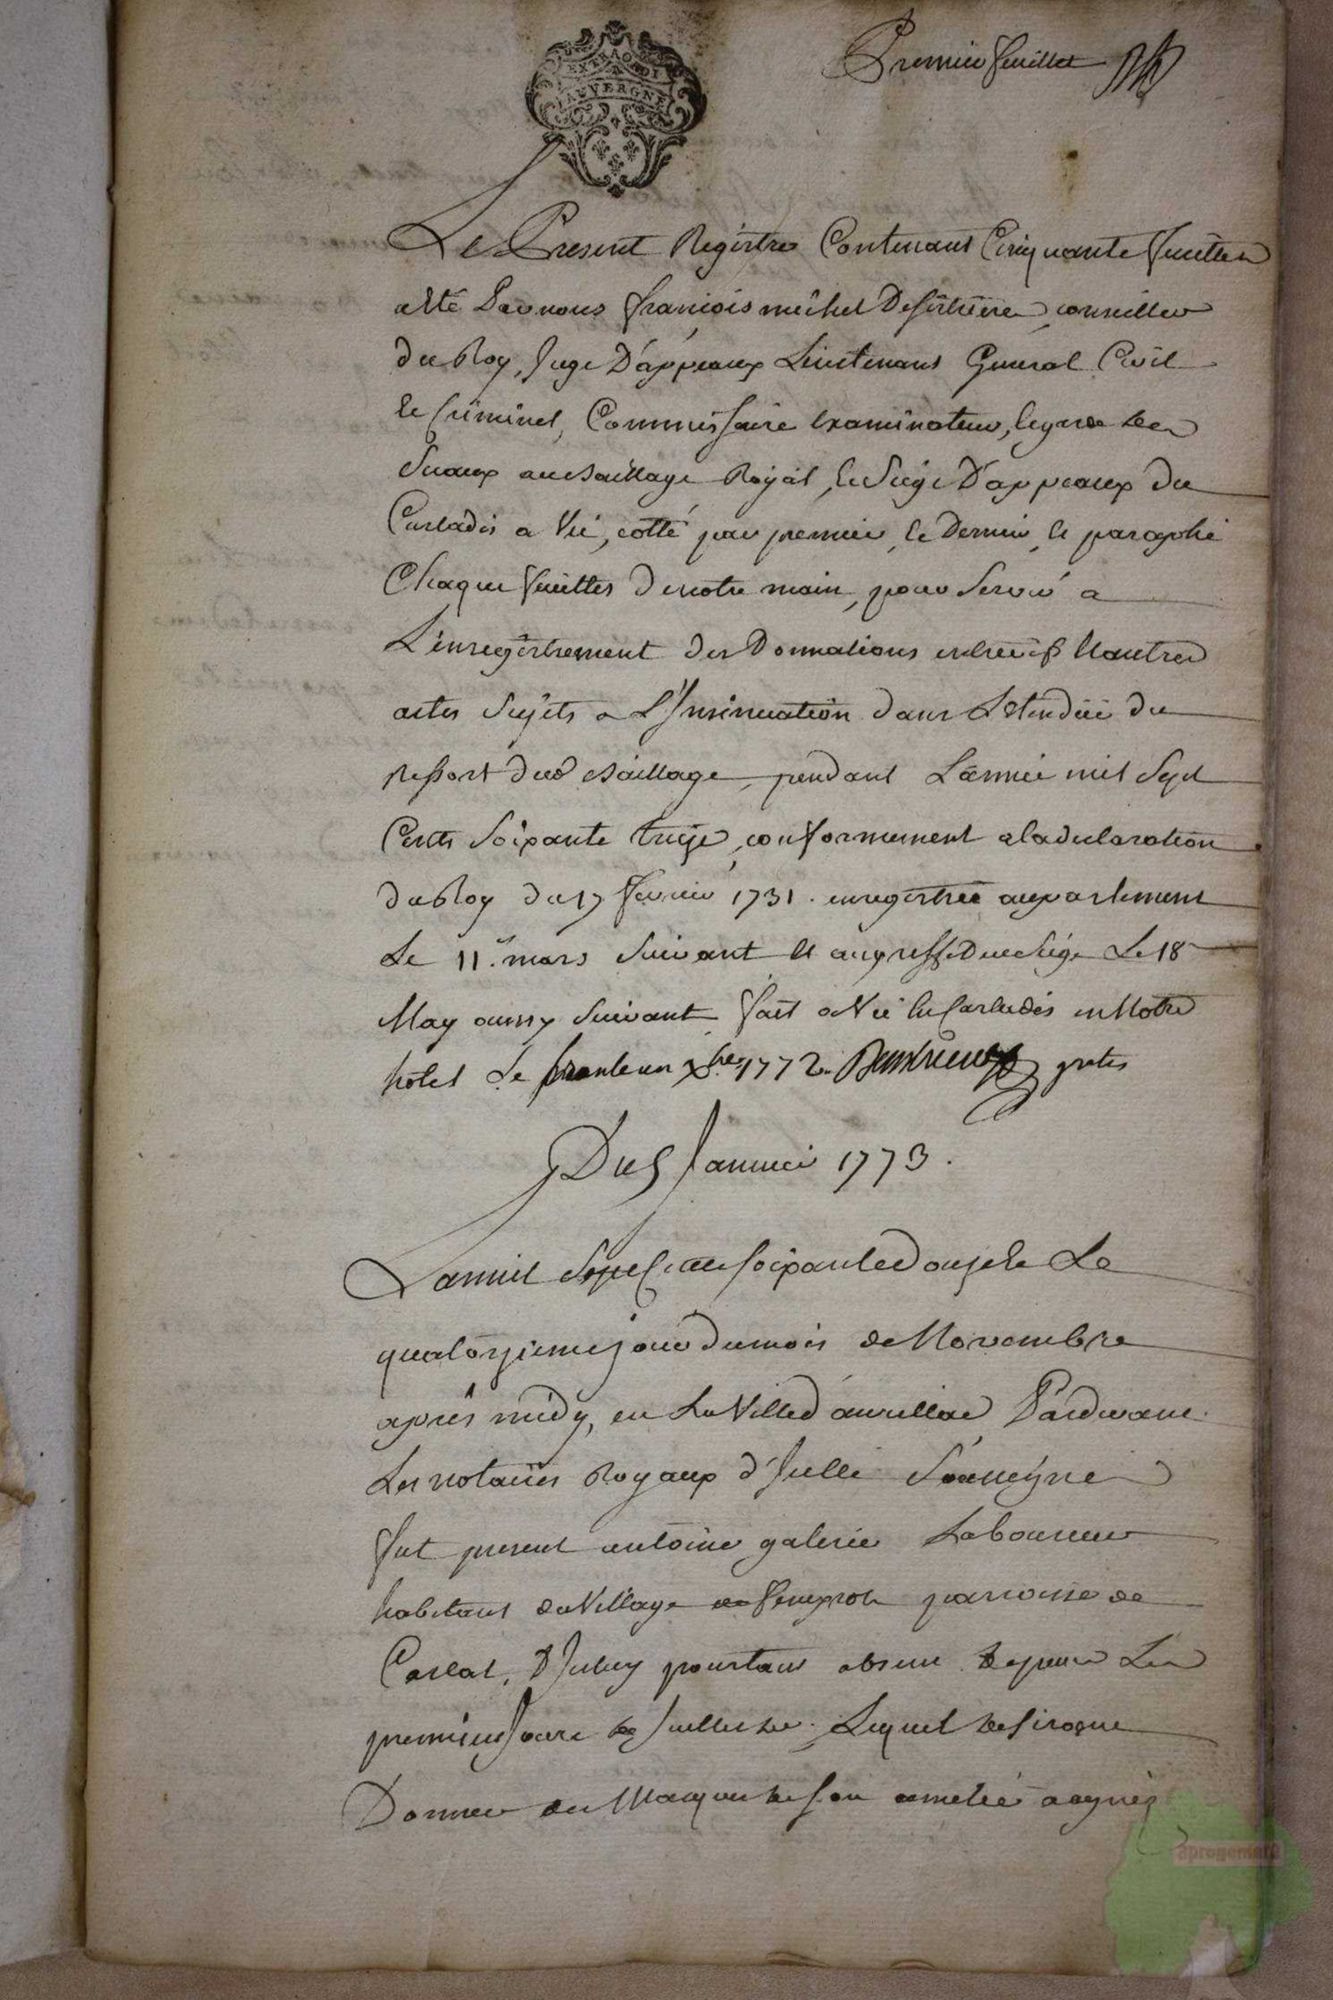 Premier feuillet
EXTRAORDI
AUVERGNE
Le Present Registre Contenant Cinquante feuilles
a Eté Par nous françois michel Desistrieres, conseiller
du Roy, Juge D'appeaux Lieutenant General Civil
Et Criminel, Commissaire Examinateur, Et garde des
Sceaux au Baillage Royal, Et Siége D'appeaux du
Carladés a Vic, cotté par premier, et Dernier, et paraphé
Chaque feuilles de notre main, pour Servir a
L'enregistrement des Donnations entrevifs Et autres
actes Sujets a L'Insinuation dans L'etendüe du
ressort dud Baillage, pendant L'année mil Sept
Cents Soixante treize, conformement a la declaration
du Roy du 17 fevrier 1731. enregistrée au parlement
Le 11 mars Suivant et au greffe Du Siége Le 18
May aussy Suivant, fait a Vic En Carladés en Notre
hôtel Le trente un Xbre 1772. gratis
Du 5 Janvier 1773.
L'an mil Sept Cent Soixante Douze Et Le
quatorzieme jour du mois de Novembre
après midy, en La Ville d'aurillac Pardevant
Les notaires Royaux d'Icelle Soussignes
fut present antoine galerie Laboureur
habitant du Village de parroisse de
Carlat, D'Icluy pourtant absent depuis Les
premiers Jours de Juillet Lequel desirant
Donner des Marques de Son amitié a agnès
aprogemere